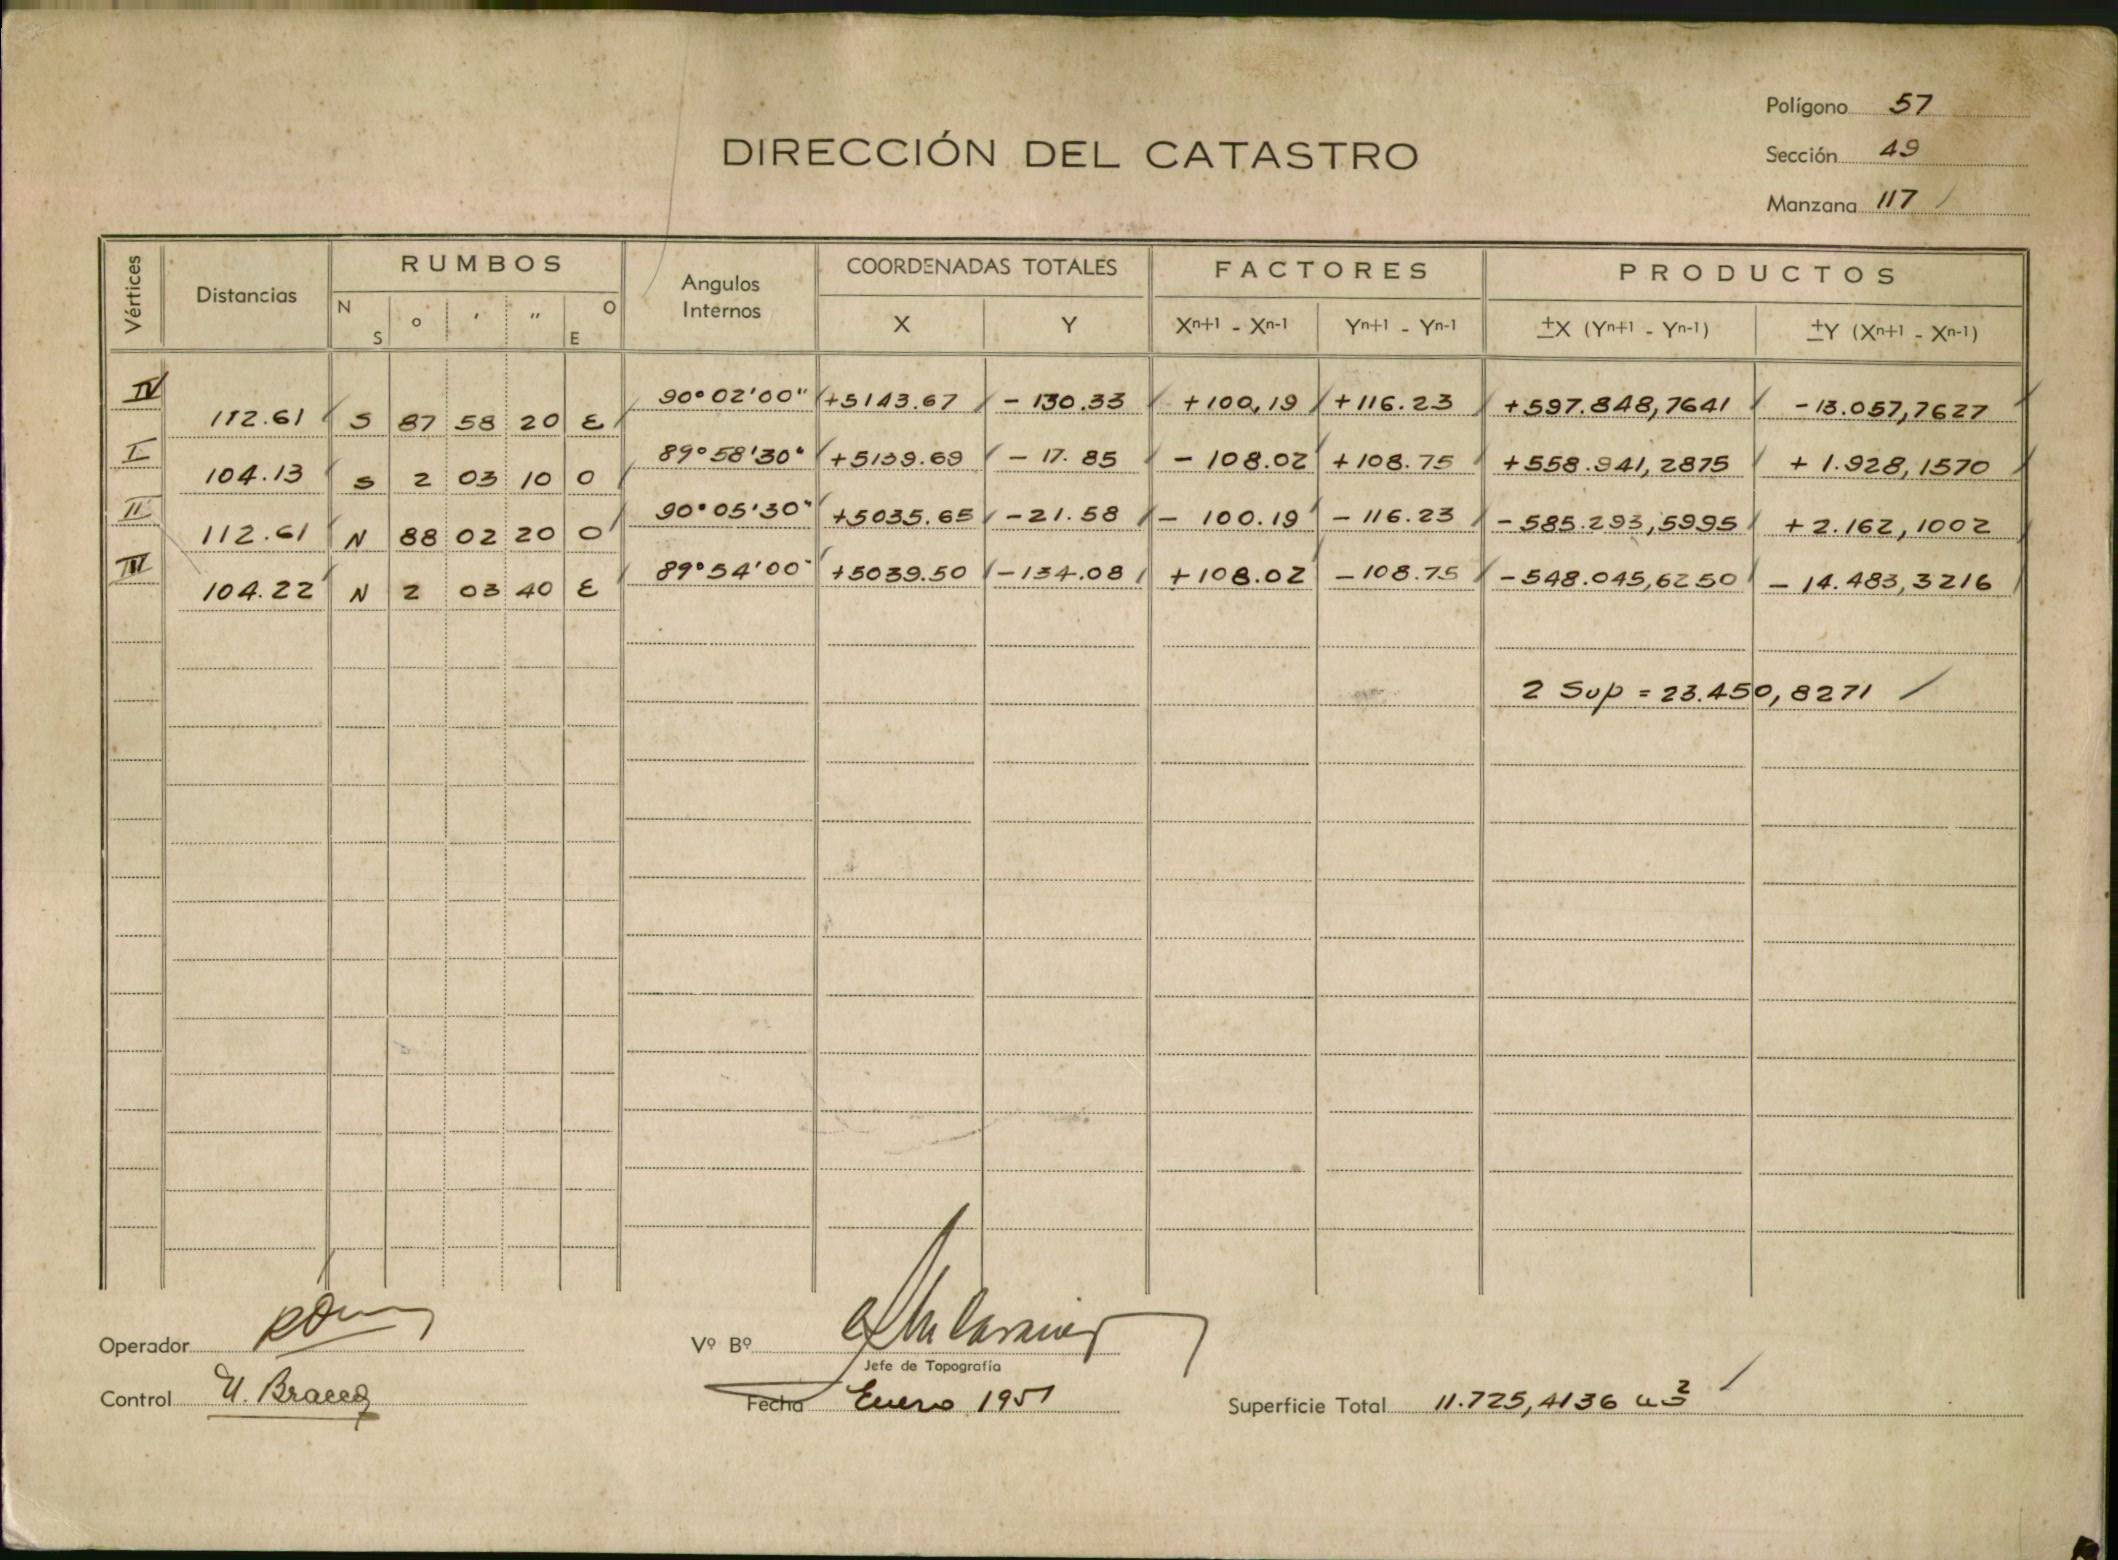 Polígono 57
DIRECCIÓN DEL CATASTRO
Sección 49
Manzana 117
Vértices Distancias RUMBOS Angulos Internos COORDENADAS TOTALES FACTORES PRODUCTOS
N S o ' " O E X Y Xn+1 - Xn-1 Yn+1 - Yn-1 ±X (Yn+1 - Yn-1) ±Y (Xn+1 - Xn-1)
IV 90°02'00" +5143.67 - 130.33 +100,19 +116.23 +597.848,7641 -13.057,7627
112.61 S 87 58 20 E
I 89°58'30" +5139.69 - 17.85 - 108.02 +108.75 +558.941,2875 + 1.928,1570
104.13 S 2 03 10 O
II 90°05'30" +5035.65 -21.58 - 100.19 - 116.23 -585.293,5995 + 2.162,1002
112.61 N 88 02 20 O
III 89°54'00" +5039.50 -134.08 +108.02 -108.75 -548.045,6250 - 14.483,3216
104.22 N 2 03 40 E
2 Sup = 23.450,8271
Operador
Vº Bº
Jefe de Topografía
Control
Fecha Enero 1951
Superficie Total 11.725,4136 m2